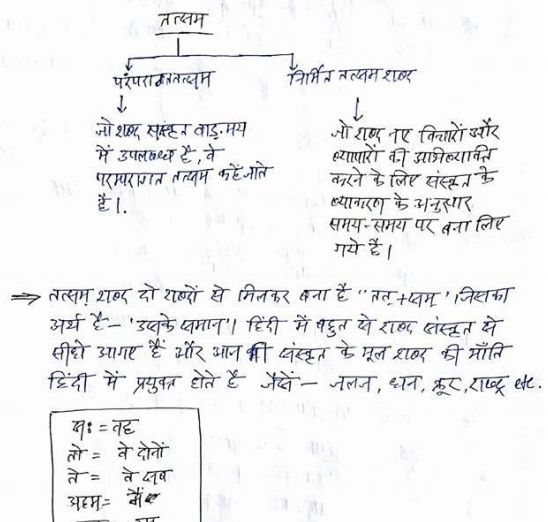 तत्सम
परंपरागत तत्सम
निर्मित तत्सम शब्द
जो शब्द संस्कृत वाङ्मय
में उपलब्ध है, वे
परम्परागत तत्सम कहे जाते
है।
जो शब्द नए विचारों और
व्यापारों की अभिव्यक्ति
करने के लिए संस्कृत के
व्याकरण के अनुसार
समय-समय पर बना लिए
गये है।
⇒ तत्सम् शब्द दो शब्दों से मिलकर बना है "तत् + सम्" जिसका
अर्थ है- 'उसके समान'। हिंदी में बहुत से शब्द संस्कृत से
सीधे आगए हैं और आज भी संस्कृत के मूल शब्द की भाँति
हिंदी में प्रयुक्त होते है जैसे- जलज, धन, क्रूर, राष्ट्र etc.
सः = वह
तो = वे दोनों
ते = वे सब
अहम = मैं